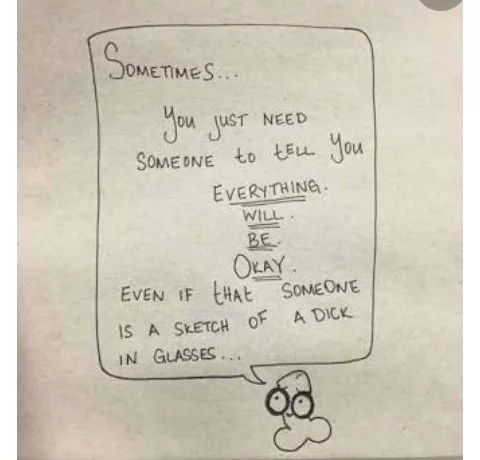 Sometimes...
You just need
someone to tell you
Everything.
Will.
Be.
Okay.
Even if that someone
is a sketch of a dick
in glasses...